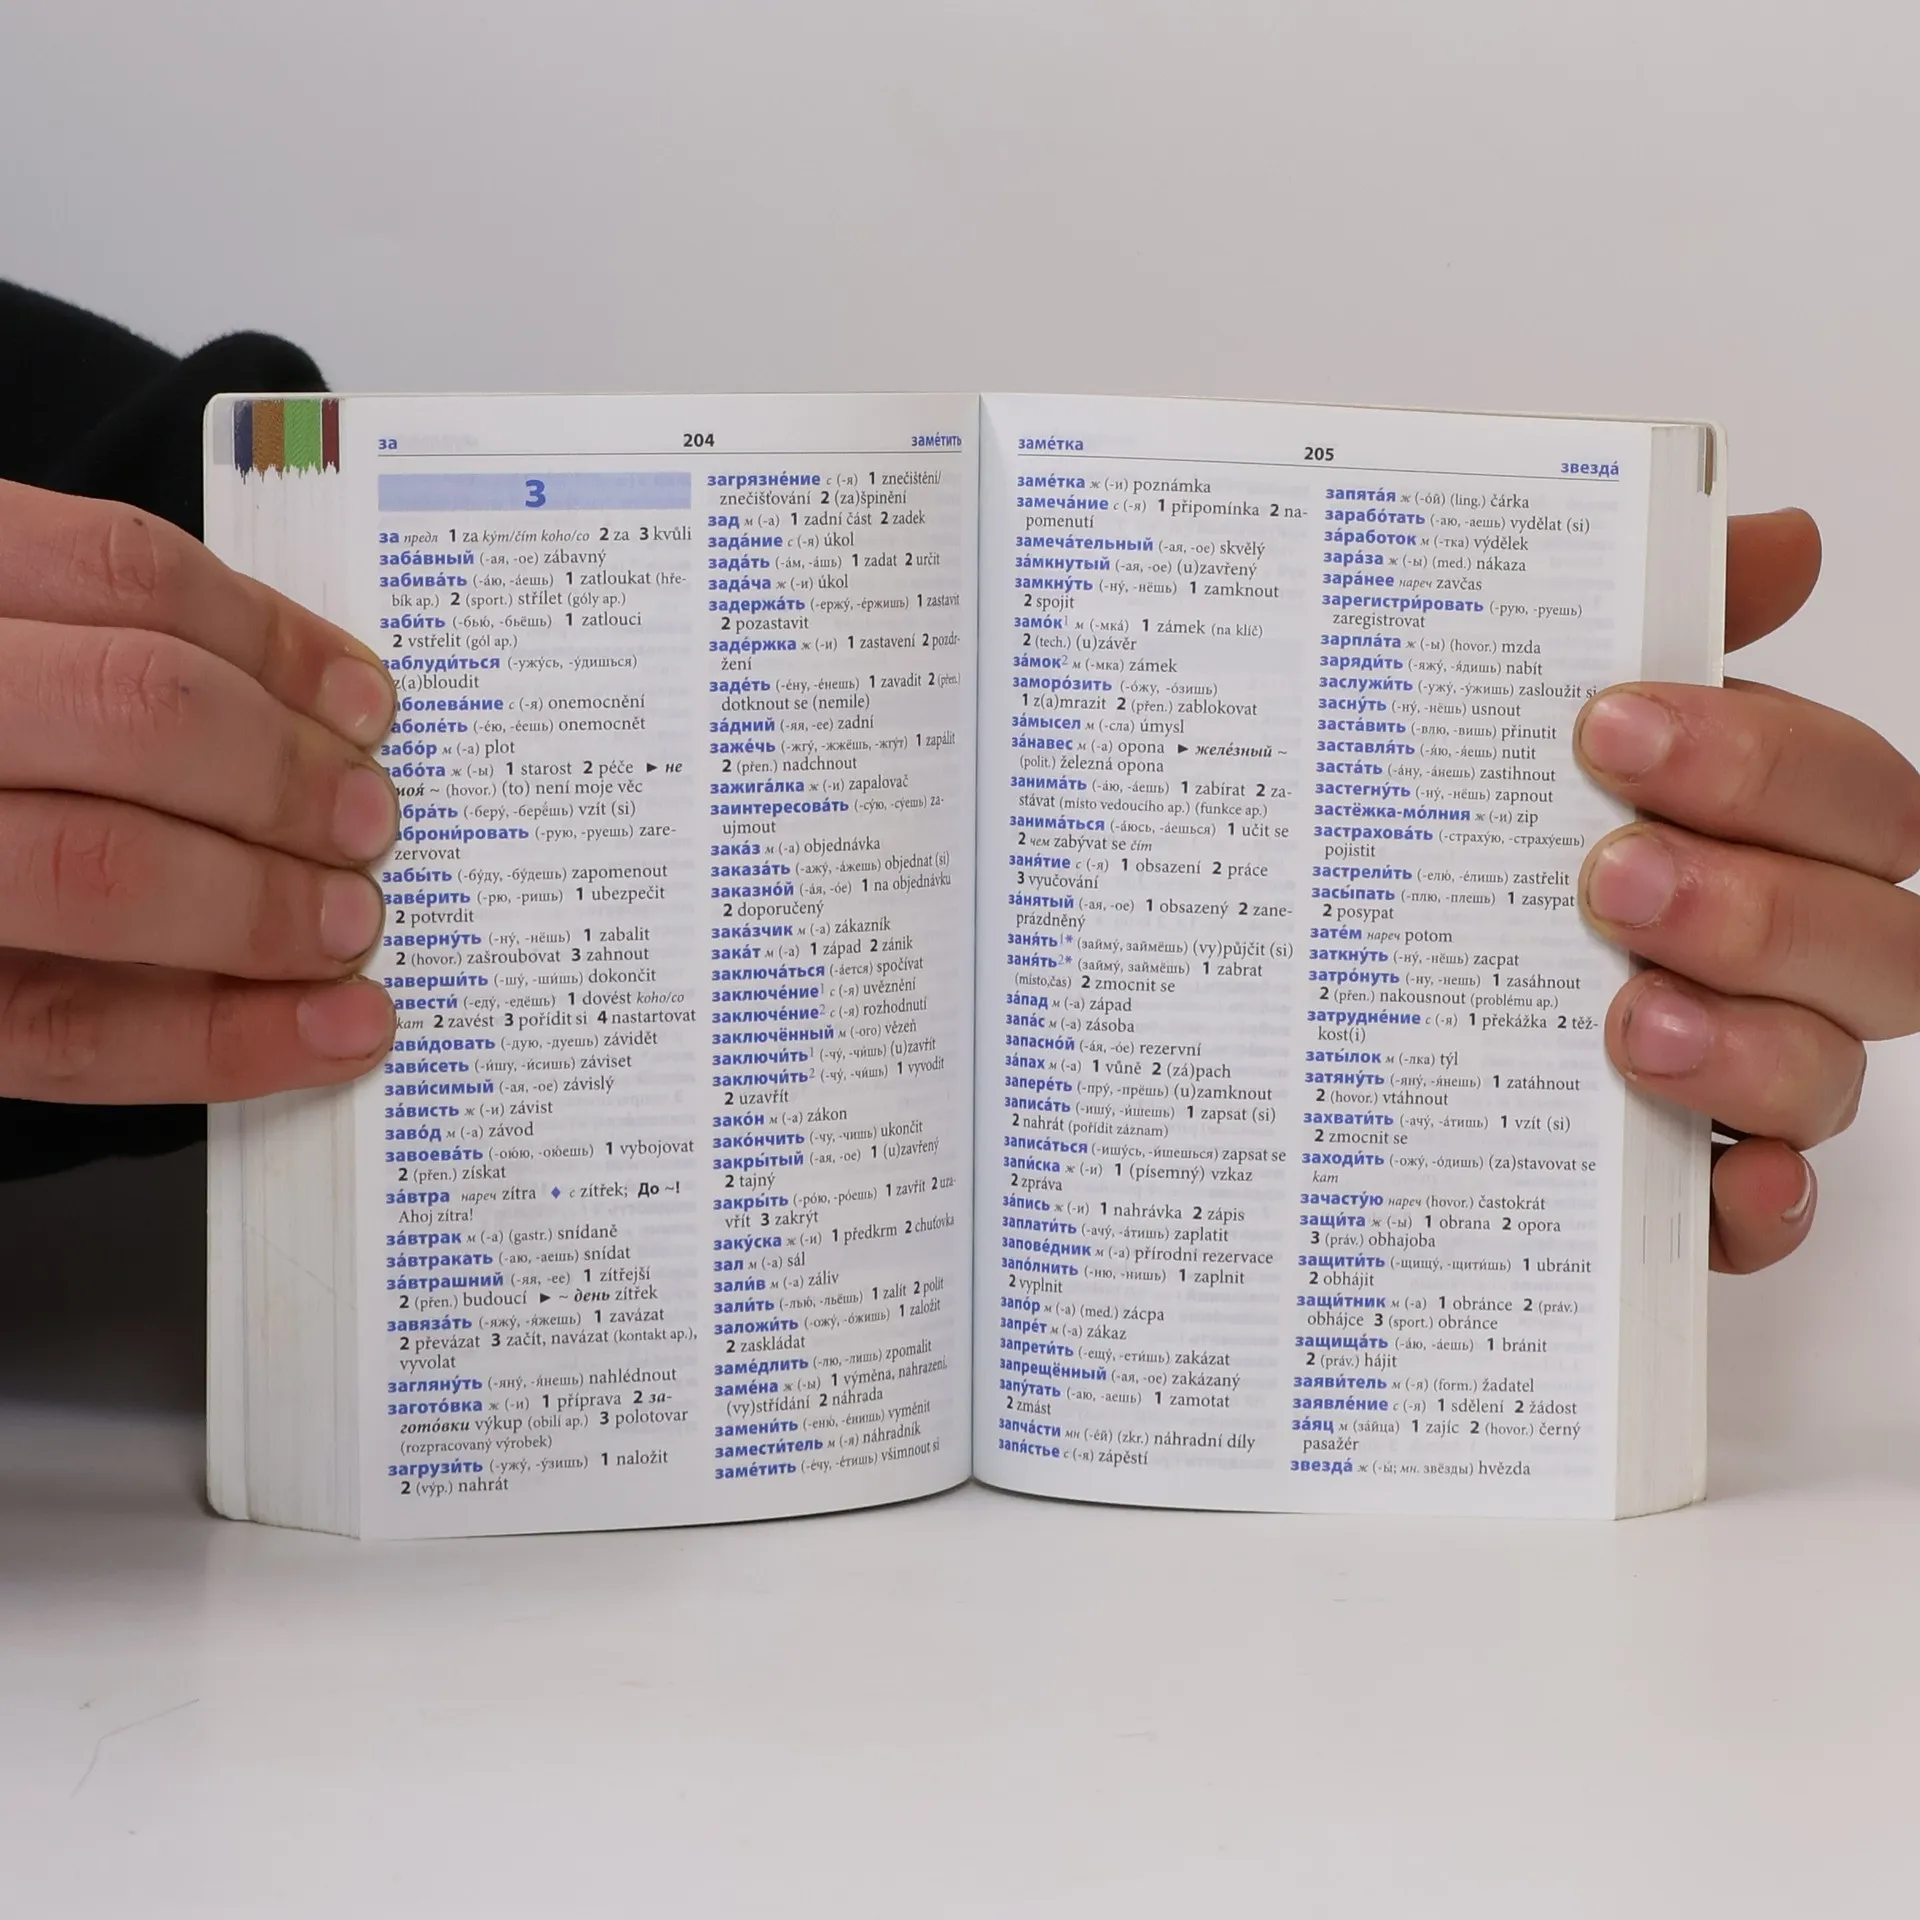 за 204 заме́тить
З
за предл 1 za kým/čím koho/co 2 za 3 kvůli
заба́вный (-ая, -ое) zábavný
забива́ть (-а́ю, -а́ешь) 1 zatloukat (hře-
bík ap.) 2 (sport.) střílet (góly ap.)
заби́ть (-бью́, -бьёшь) 1 zatlouci
2 vstřelit (gól ap.)
заблуди́ться (-ужу́сь, -у́дишься)
z(a)bloudit
аболева́ние с (-я) onemocnění
аболе́ть (-е́ю, -е́ешь) onemocnět
забо́р м (-а) plot
забо́та ж (-ы) 1 starost 2 péče ► не
моя́ ~ (hovor.) (to) není moje věc
абра́ть (-беру́, -берёшь) vzít (si)
аброни́ровать (-рую, -руешь) zare-
zervovat
забы́ть (-бу́ду, -бу́дешь) zapomenout
заве́рить (-рю, -ришь) 1 ubezpečit
2 potvrdit
заверну́ть (-ну́, -нёшь) 1 zabalit
2 (hovor.) zašroubovat 3 zahnout
заверши́ть (-шу́, -ши́шь) dokončit
авести́ (-еду́, -едёшь) 1 dovést koho/co
kam 2 zavést 3 pořídit si 4 nastartovat
зави́довать (-дую, -дуешь) závidět
зави́сеть (-и́шу, -и́сишь) záviset
зави́симый (-ая, -ое) závislý
за́висть ж (-и) závist
заво́д м (-а) závod
завоева́ть (-ою́ю, -ою́ешь) 1 vybojovat
2 (přen.) získat
за́втра нареч zítra ♦ с zítřek; До ~!
Ahoj zítra!
за́втрак м (-а) (gastr.) snídaně
за́втракать (-аю, -аешь) snídat
за́втрашний (-яя, -ее) 1 zítřejší
2 (přen.) budoucí ► ~ день zítřek
завяза́ть (-яжу́, -я́жешь) 1 zavázat
2 převázat 3 začít, navázat (kontakt ap.),
vyvolat
загляну́ть (-яну́, -я́нешь) nahlédnout
загото́вка ж (-и) 1 příprava 2 за-
гото́вки výkup (obilí ap.) 3 polotovar
(rozpracovaný výrobek)
загрузи́ть (-ужу́, -у́зишь) 1 naložit
2 (výp.) nahrát
загрязне́ние с (-я) 1 znečištění/
znečišťování 2 (za)špinění
зад м (-а) 1 zadní část 2 zadek
зада́ние с (-я) úkol
зада́ть (-а́м, -а́шь) 1 zadat 2 určit
зада́ча ж (-и) úkol
задержа́ть (-ержу́, -е́ржишь) 1 zastavit
2 pozastavit
заде́ржка ж (-и) 1 zastavení 2 pozdr-
žení
заде́ть (-е́ну, -е́нешь) 1 zavadit 2 (přen.)
dotknout se (nemile)
за́дний (-яя, -ее) zadní
заже́чь (-жгу́, -жжёшь, -жгу́т) 1 zapálit
2 (přen.) nadchnout
зажига́лка ж (-и) zapalovač
заинтересова́ть (-су́ю, -су́ешь) za-
ujmout
зака́з м (-а) objednávka
заказа́ть (-ажу́, -а́жешь) objednat (si)
заказно́й (-а́я, -о́е) 1 na objednávku
2 doporučený
зака́зчик м (-а) zákazník
зака́т м (-а) 1 západ 2 zánik
заключа́ться (-а́ется) spočívat
заключе́ние¹ с (-я) uvěznění
заключе́ние² с (-я) rozhodnutí
заключённый м (-ого) vězeň
заключи́ть¹ (-чу́, -чи́шь) (u)zavřít
заключи́ть² (-чу́, -чи́шь) 1 vyvodit
2 uzavřít
зако́н м (-а) zákon
зако́нчить (-чу, -чишь) ukončit
закры́тый (-ая, -ое) 1 (u)zavřený
2 tajný
закры́ть (-ро́ю, -ро́ешь) 1 zavřít 2 uza-
vřít 3 zakrýt
заку́ска ж (-и) 1 předkrm 2 chuťovka
зал м (-а) sál
зали́в м (-а) záliv
зали́ть (-лью́, -льёшь) 1 zalít 2 polít
заложи́ть (-ожу́, -о́жишь) 1 založit
2 zaskládat
заме́длить (-лю, -лишь) zpomalit
заме́на ж (-ы) 1 výměna, nahrazení,
(vy)střídání 2 náhrada
замени́ть (-еню́, -е́нишь) vyměnit
замести́тель м (-я) náhradník
заме́тить (-е́чу, -е́тишь) všimnout si
заме́тка 205 звезда́
заме́тка ж (-и) poznámka
замеча́ние с (-я) 1 připomínka 2 na-
pomenutí
замеча́тельный (-ая, -ое) skvělý
за́мкнутый (-ая, -ое) (u)zavřený
замкну́ть (-ну́, -нёшь) 1 zamknout
2 spojit
замо́к¹ м (-мка́) 1 zámek (na klíč)
2 (tech.) (u)závěr
за́мок² м (-мка) zámek
заморо́зить (-о́жу, -о́зишь)
1 z(a)mrazit 2 (přen.) zablokovat
за́мысел м (-сла) úmysl
за́навес м (-а) opona ► желе́зный ~
(polit.) železná opona
занима́ть (-а́ю, -а́ешь) 1 zabírat 2 za-
stávat (místo vedoucího ap.) (funkce ap.)
занима́ться (-а́юсь, -а́ешься) 1 učit se
2 чем zabývat se čím
заня́тие с (-я) 1 obsazení 2 práce
3 vyučování
за́нятый (-ая, -ое) 1 obsazený 2 zane-
prázdněný
заня́ть¹* (займу́, займёшь) (vy)půjčit (si)
заня́ть²* (займу́, займёшь) 1 zabrat
(místo,čas) 2 zmocnit se
за́пад м (-а) západ
запа́с м (-а) zásoba
запасно́й (-а́я, -о́е) rezervní
за́пах м (-а) 1 vůně 2 (zá)pach
запере́ть (-пру́, -прёшь) (u)zamknout
записа́ть (-ишу́, -и́шешь) 1 zapsat (si)
2 nahrát (pořídit záznam)
записа́ться (-ишу́сь, -и́шешься) zapsat se
запи́ска ж (-и) 1 (písemný) vzkaz
2 zpráva
за́пись ж (-и) 1 nahrávka 2 zápis
заплати́ть (-ачу́, -а́тишь) zaplatit
запове́дник м (-а) přírodní rezervace
запо́лнить (-ню, -нишь) 1 zaplnit
2 vyplnit
запо́р м (-а) (med.) zácpa
запре́т м (-а) zákaz
запрети́ть (-ещу́, -ети́шь) zakázat
запрещённый (-ая, -ое) zakázaný
запу́тать (-аю, -аешь) 1 zamotat
2 zmást
запча́сти мн (-е́й) (zkr.) náhradní díly
запя́стье с (-я) zápěstí
запята́я ж (-о́й) (ling.) čárka
зарабо́тать (-аю, -аешь) vydělat (si)
за́работок м (-тка) výdělek
зара́за ж (-ы) (med.) nákaza
зара́нее нареч zavčas
зарегистри́ровать (-рую, -руешь)
zaregistrovat
зарпла́та ж (-ы) (hovor.) mzda
заряди́ть (-яжу́, -я́дишь) nabít
заслужи́ть (-ужу́, -у́жишь) zasloužit si
засну́ть (-ну́, -нёшь) usnout
заста́вить (-влю, -вишь) přinutit
заставля́ть (-я́ю, -я́ешь) nutit
заста́ть (-а́ну, -а́нешь) zastihnout
застегну́ть (-ну́, -нёшь) zapnout
застёжка-мо́лния ж (-и) zip
застрахова́ть (-страху́ю, -страху́ешь)
pojistit
застрели́ть (-елю́, -е́лишь) zastřelit
засы́пать (-плю, -плешь) 1 zasypat
2 posypat
зате́м нареч potom
заткну́ть (-ну́, -нёшь) zacpat
затро́нуть (-ну, -нешь) 1 zasáhnout
2 (přen.) nakousnout (problému ap.)
затрудне́ние с (-я) 1 překážka 2 těž-
kost(i)
заты́лок м (-лка) týl
затяну́ть (-яну́, -я́нешь) 1 zatáhnout
2 (hovor.) vtáhnout
захвати́ть (-ачу́, -а́тишь) 1 vzít (si)
2 zmocnit se
заходи́ть (-ожу́, -о́дишь) (za)stavovat se
kam
зачасту́ю нареч (hovor.) častokrát
защи́та ж (-ы) 1 obrana 2 opora
3 (práv.) obhajoba
защити́ть (-щищу́, -щити́шь) 1 ubránit
2 obhájit
защи́тник м (-а) 1 obránce 2 (práv.)
obhájce 3 (sport.) obránce
защища́ть (-а́ю, -а́ешь) 1 bránit
2 (práv.) hájit
заяви́тель м (-я) (form.) žadatel
заявле́ние с (-я) 1 sdělení 2 žádost
за́яц м (за́йца) 1 zajíc 2 (hovor.) černý
pasažér
звезда́ ж (-ы́; мн. звёзды) hvězda